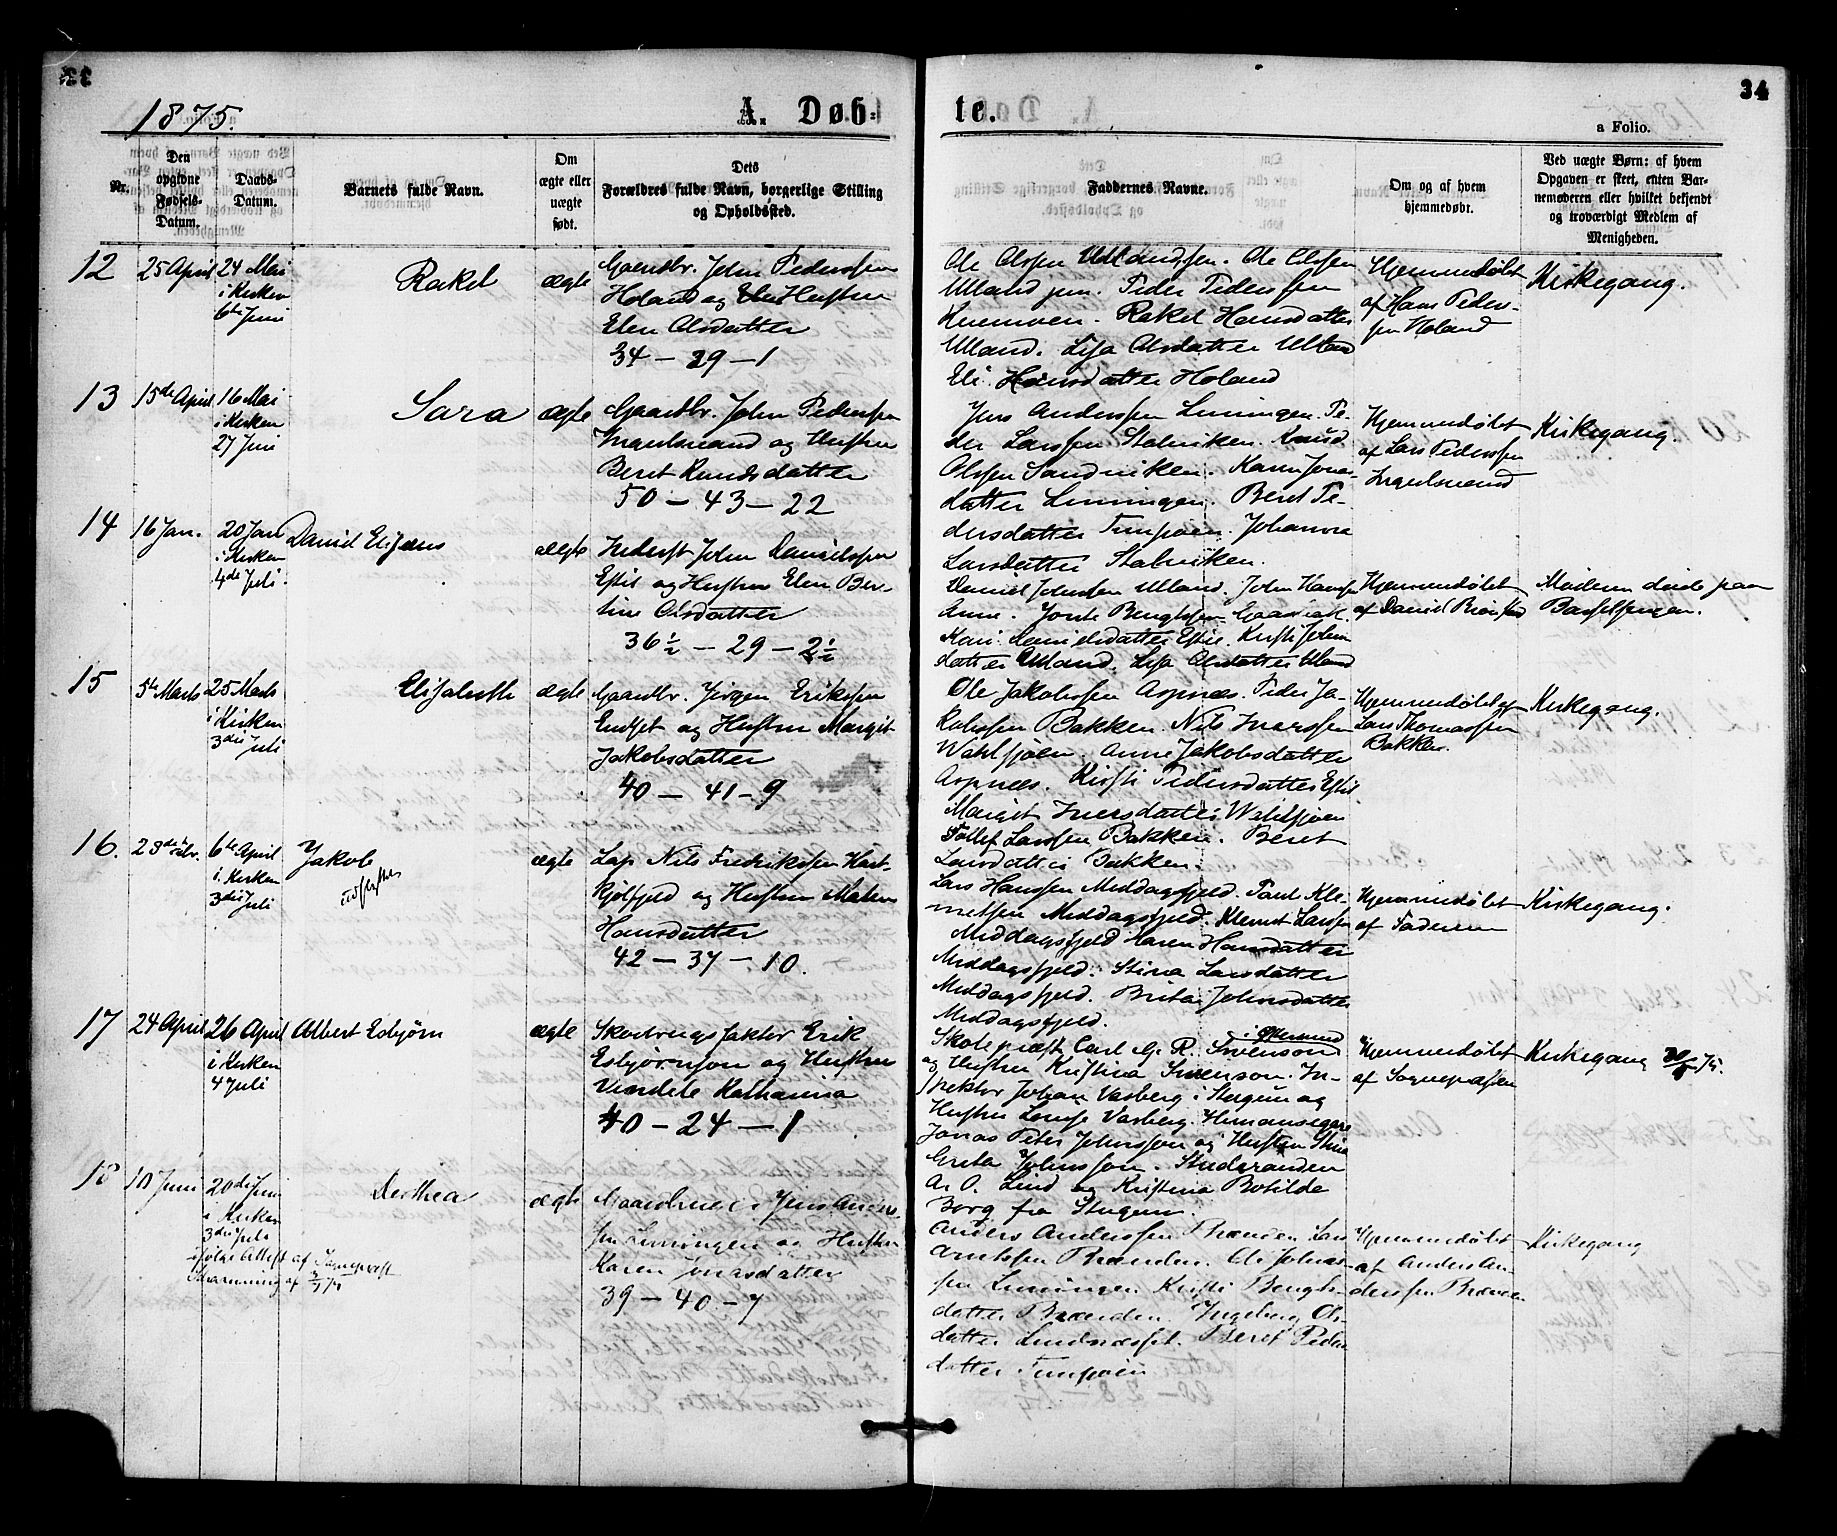 34
1875.
A. Døb-
te.
a Folio.
Nr.
Den opgivne Fødsels-Datum.
Daabs-Datum.
Barnets fulde Navn.
Om ægte eller uægte født.
Dets
Forældres fulde Navn, borgerlige Stilling
og Opholdssted.
Faddernes Navne.
Om og af hvem
hjemmedøbt.
Ved uægte Børn: af hvem
Opgaven er skeet, enten Bar-
nemoderen eller hvilket bekjendt
og troværdigt Medlem af
Menigheden.
12
25 April
24 Mai
i Kirken
6te Juni
Rakel
ægte
Gaardbr. John Pederssen
Holand og Hustru
Elen Olsdatter
34 – 29 – 1
Ole Olssen Ulland sen. Ole Olssen
Ulland jun. Peder Pederssen
Rakel Hansdatter
Ulland. Lisa Olsdatter Ulland
Eli Hansdatter Holand
Hjemmedøbt
af Hans Peders-
sen Holand
Kirkegang.
13
15de April
16 Mai
i Kirken
27 Juni
Sara
ægte
Gaardbr. John Pederssen
Ingulsvand og Hustru
Beret Knudsdatter
50 – 43 – 22
Jens Anderssen Limingen. Pe-
der Larssen Stalviken. Knud
Olssen Sandviken. Karen Jonas-
datter Limingen. Beret Pe-
dersdatter Tunsjøen. Johanna
Larsdatter Stalviken.
Hjemmedøbt
af Lars Pederssen
Ingulsvand
Kirkegang.
14
16 Jan.
20 Jan
i Kirken
4de Juli.
Daniel Elisæus
ægte
Inderst John Danielssen
Estil og Hustru Elen Ber-
tine Olsdatter
36½ – 29 – 2½
Daniel Johnssen Ulland. John Hanssen
Aune. Jonte Bengtssen
Kari Danielsdatter Estil. Kirsti John
datter Ulland. Lisa Olsdatter Ulland
Hjemmedøbt
af Daniel
Moderen døde paa
Barselsengen.
15
5te Marts
25 Marts
i Kirken
3die Juli
Elisabeth
ægte
Gaardbr. Jørgen Erikssen
og Hustru Margit
Jakobsdatter
40 – 41 – 9
Ole Jakobssen Aspnæs. Peder Ja-
kobssen Bakken. Nils Iverssen
Wahlsjøen. Anne Jakobsdatter
Aspnæs. Kirsti Pedersdatter Estil
Margit Iversdatter Wahlsjøen
Tollef Larssen Bakken. Beret
Larsdatter Bakken.
Hjemmedøbt af
Lars Thomassen
Bakken.
Kirkegang.
16.
23de Febr.
6te April
i Kirken
3die Juli
Jakob
ægte
Lap Nils Fredrikssen Hart-
kjølfjeld og Hustru Malene
Hansdatter
42 – 37 – 10.
Lars Hanssen Middagsfjeld. Paul Kle-
metsen Middagsfjeld. Klemet Larssen
Middagsfjeld Maren Hansdatter
Middagsfjeld. Stina Larsdatter
Middagsfjeld. Brita Johnsdatter
Middagsfjeld.
Hjemmedøbt
af Faderen
Kirkegang.
17
24 April
26 April
i Kirken
4 Juli
Albert Esbjørn
ægte
Skovbrugsfaktor Erik
Esbjørnson og Hustru
Vendela Katharina
40 – 24 – 1
i Østersund
Skolepræst Carl G. R. Svenson
og Hustru Kristina Svenson. In-
spektor Johan Varberg i Stugun og
Hustru Lovise Varberg. Hemansegare
Jonas Peter Johnsson og Hustru Stina
Greta Johnsson. Studeranden
A. O. Lind og Kristina Botilde
Borg fra Stugun.
Hjemmedøbt
af Sognepræsten
Kirkegang
18
10 Juni
20de Juni
i Kirken
3die Juli
ifølge Attest af Sognepræst
Dorthea
ægte
Gaardbruger Jens Anders-
sen Limingen og Hustru
Karen Jonasdatter
39 – 40 – 7
Anders Anderssen Brænden Lars
Arntssen Brænden. Ole Johnas-
sen Limingen Kirsti Bengts-
datter Brænden Ingeborg Ols-
datter Lindsæset. Beret Peders
datter Tunsjøen
Hjemmedøbt
af Anders An-
derssen Brænden
Kirkegang